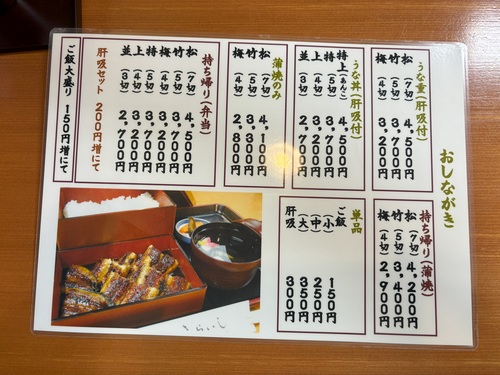 おしながき
うな重(肝吸付)
松(7切) 4,500円
竹(5切) 3,700円
梅(4切) 3,200円
うな丼(肝吸付)
特上 4,500円
特(5切) 3,700円
上(4切) 3,200円
並(3切) 2,700円
蒲焼のみ
松(7切) 4,100円
竹(5切) 3,300円
梅(4切) 2,800円
持ち帰り(弁当)
松(7切) 4,500円
竹(5切) 3,700円
梅(4切) 3,200円
特(5切) 3,700円
上(4切) 3,200円
並(3切) 2,700円
肝吸セット 200円増にて
ご飯大盛り 150円増にて
持ち帰り(蒲焼)
松(7切) 4,200円
竹(5切) 3,400円
梅(4切) 2,900円
単品
ご飯(小) 150円
(中) 250円
(大) 350円
肝吸 300円